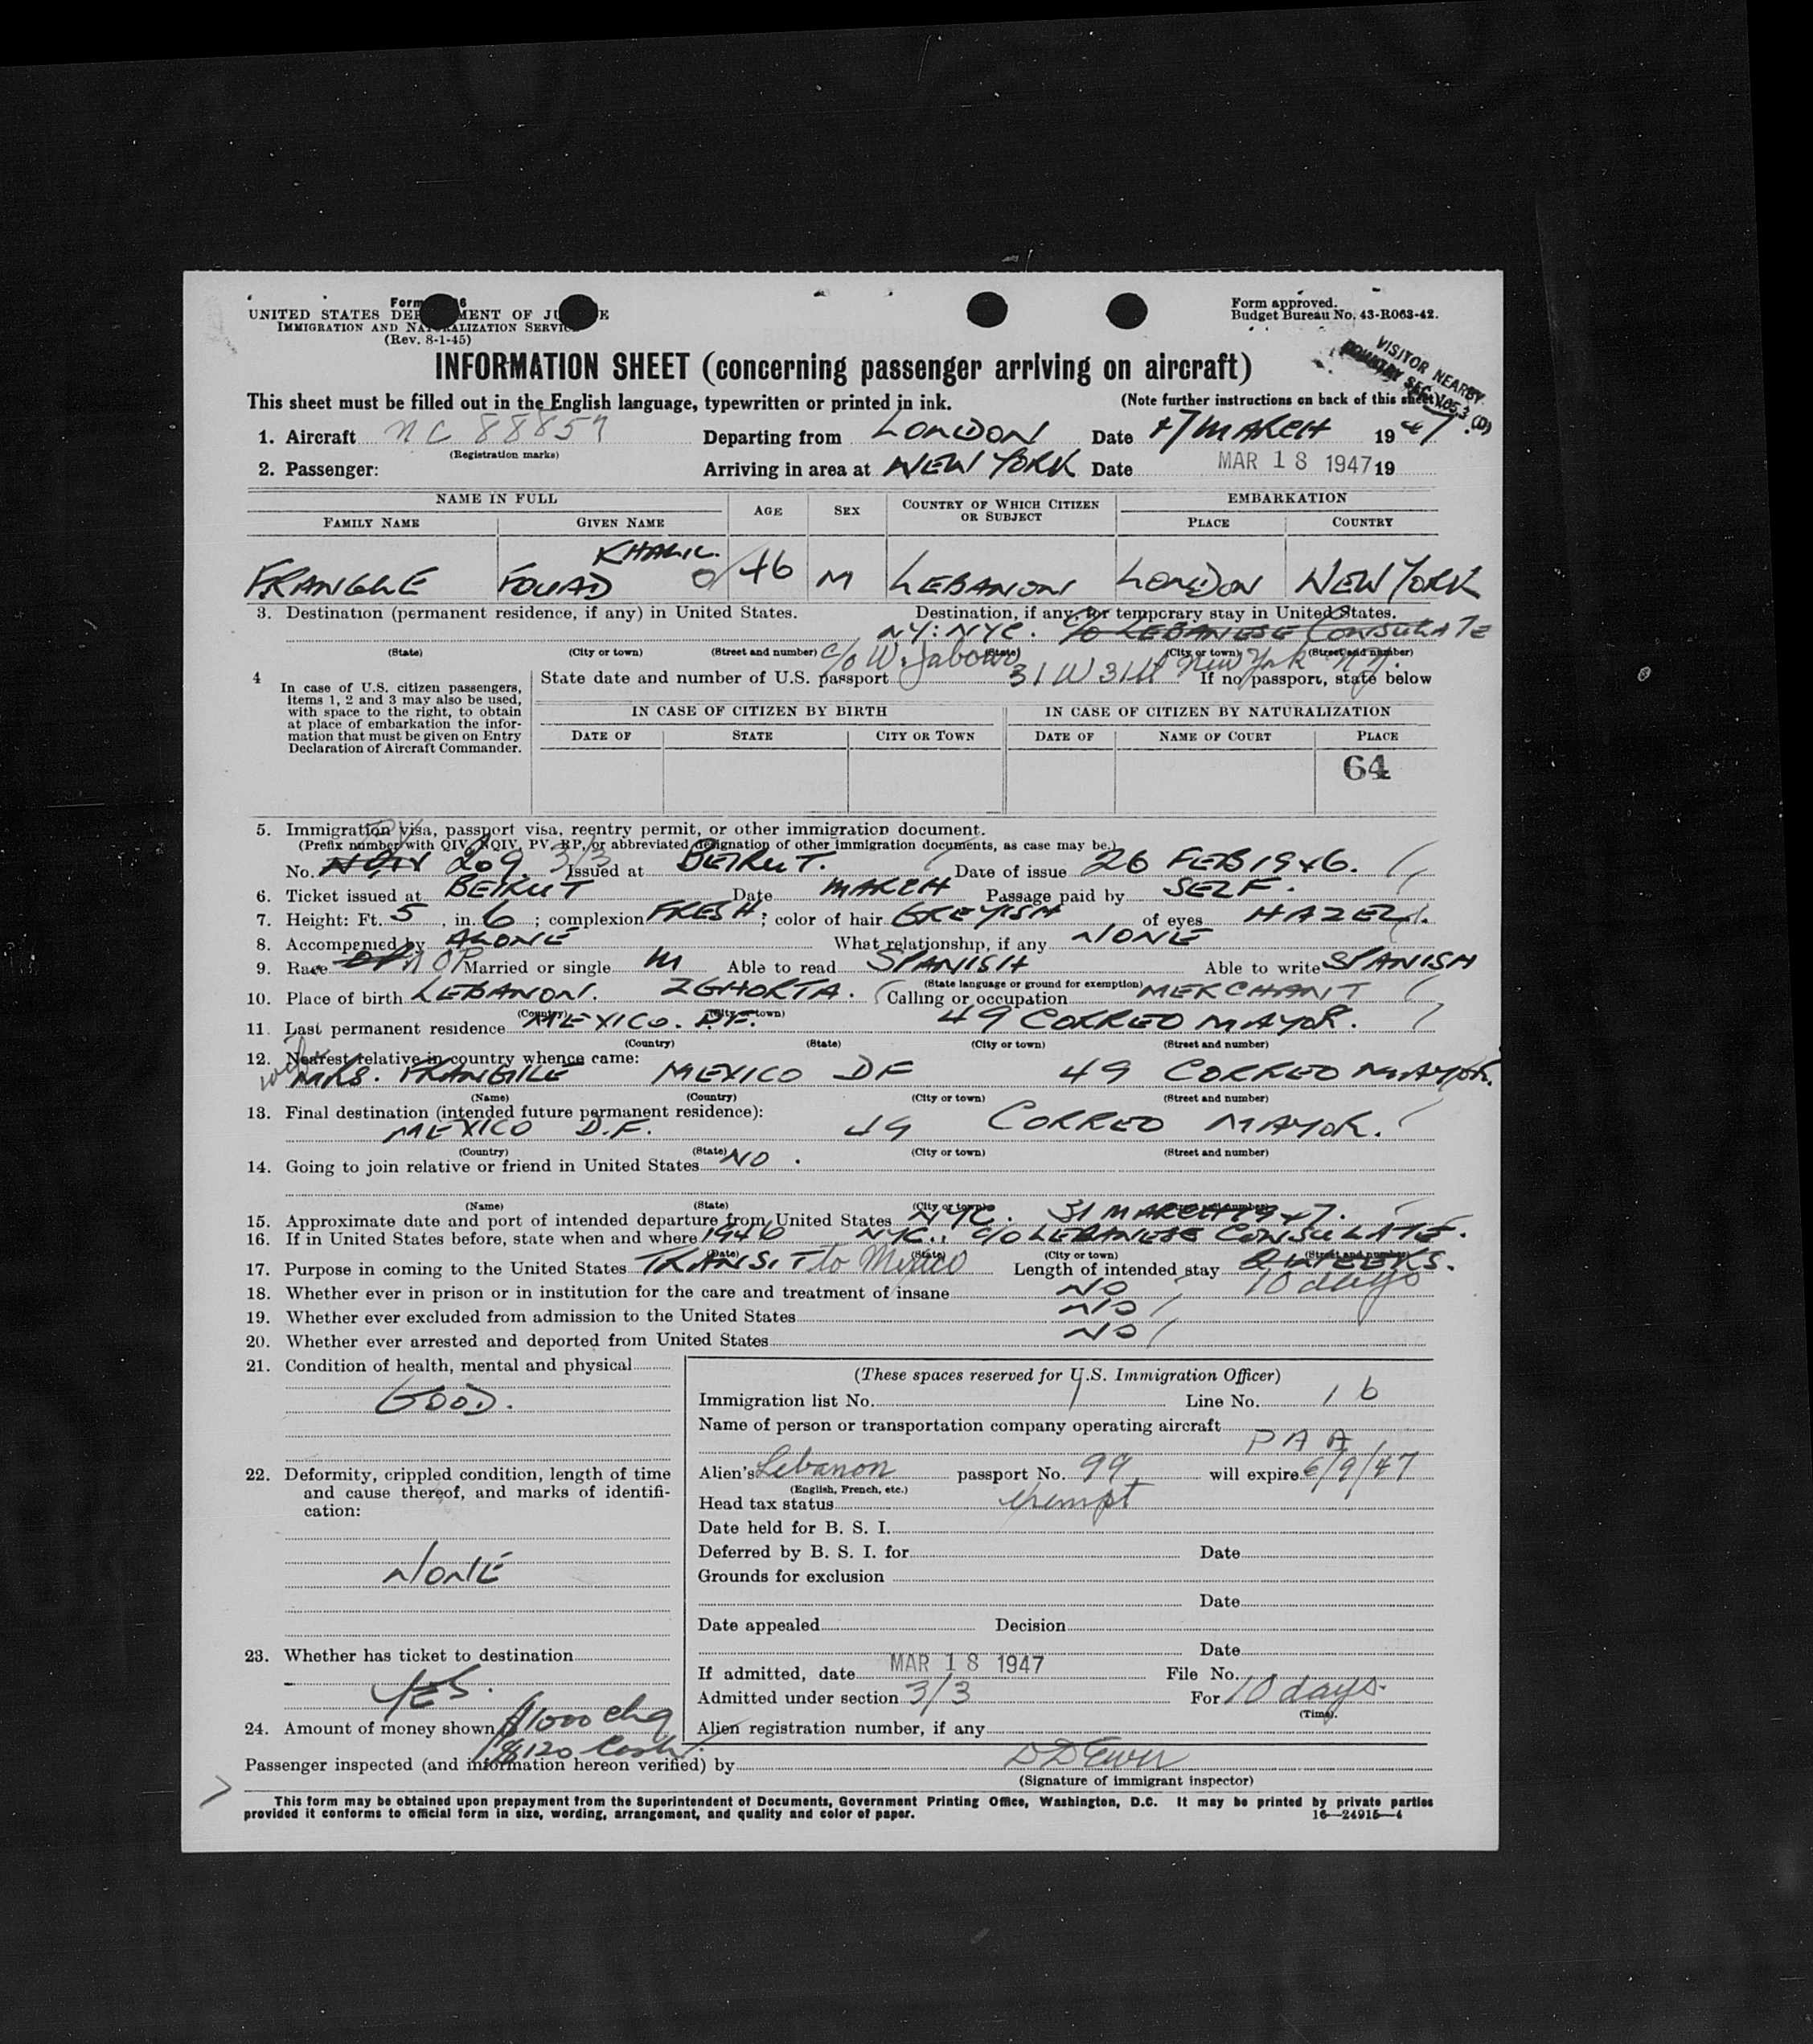 Form 6
UNITED STATES DEPARTMENT OF JUSTICE
IMMIGRATION AND NATURALIZATION SERVICE
(Rev. 8-1-45)
Form approved.
Budget Bureau No. 43-R063-42.
INFORMATION SHEET (concerning passenger arriving on aircraft)
VISITOR NEARBY
This sheet must be filled out in the English language, typewritten or printed in ink. (Note further instructions on back of this sheet)
1. Aircraft NC 88859 Departing from LONDON Date 17 MARCH 1947.
(Registration marks)
2. Passenger: Arriving in area at NEW YORK Date MAR 18 1947 19
NAME IN FULL AGE SEX COUNTRY OF WHICH CITIZEN OR SUBJECT EMBARKATION
FAMILY NAME GIVEN NAME PLACE COUNTRY
KHALIL
FRANGLE FOUAD 46 M LEBANON LONDON NEW YORK
3. Destination (permanent residence, if any) in United States. Destination, if any, for temporary stay in United States.
NY: NYC. C/O LEBANESE CONSULATE
(State) (City or town) (Street and number) (State) (City or town) (Street and number)
c/o W. Jabour 31 W 31st New York N.Y.
4 In case of U.S. citizen passengers, items 1, 2 and 3 may also be used, with space to the right, to obtain at place of embarkation the information that must be given on Entry Declaration of Aircraft Commander.
State date and number of U.S. passport If no passport, state below
IN CASE OF CITIZEN BY BIRTH IN CASE OF CITIZEN BY NATURALIZATION
DATE OF STATE CITY OR TOWN DATE OF NAME OF COURT PLACE
64
5. Immigration visa, passport visa, reentry permit, or other immigration document.
(Prefix number with QIV, NQIV, PV, RP, or abbreviated designation of other immigration documents, as case may be.)
No. 209 3/3 Issued at BEIRUT. Date of issue 26 FEB 1946.
6. Ticket issued at BEIRUT Date MARCH Passage paid by SELF.
7. Height: Ft. 5, in. 6; complexion FRESH; color of hair GREYISH of eyes HAZEL.
8. Accompanied by ALONE What relationship, if any NONE
9. Race Married or single M Able to read SPANISH Able to write SPANISH
(State language or ground for exemption)
10. Place of birth LEBANON. ZGHORTA. Calling or occupation MERCHANT
(Country) (City or town)
11. Last permanent residence MEXICO. D.F. 49 CORREO MAYOR.
(Country) (State) (City or town) (Street and number)
12. Nearest relative in country whence came:
wife MRS. FRANGILE MEXICO DF 49 CORREO MAYOR.
(Name) (Country) (City or town) (Street and number)
13. Final destination (intended future permanent residence):
MEXICO D.F. 49 CORREO MAYOR.
(Country) (State) (City or town) (Street and number)
14. Going to join relative or friend in United States NO.
(Name) (State) (City or town) (Street and number)
15. Approximate date and port of intended departure from United States NYC. 31 MARCH 1947.
16. If in United States before, state when and where 1946 NYC., C/O LEBANESE CONSULATE.
(Date) (State) (City or town) (Street and number)
17. Purpose in coming to the United States TRANSIT to Mexico Length of intended stay 2 WEEKS.
10 days
18. Whether ever in prison or in institution for the care and treatment of insane NO
19. Whether ever excluded from admission to the United States NO
20. Whether ever arrested and deported from United States NO
21. Condition of health, mental and physical
GOOD.
22. Deformity, crippled condition, length of time and cause thereof, and marks of identification:
NONE
23. Whether has ticket to destination
YES.
24. Amount of money shown $1000 chq
$120 Cash.
(These spaces reserved for U.S. Immigration Officer)
Immigration list No. 1 Line No. 16
Name of person or transportation company operating aircraft
PAA
Alien's Lebanon passport No. 99 will expire 6/9/47
(English, French, etc.)
Head tax status exempt
Date held for B. S. I.
Deferred by B. S. I. for Date
Grounds for exclusion
Date
Date appealed Decision
Date
If admitted, date MAR 18 1947 File No.
Admitted under section 3/3 For 10 days.
(Time)
Alien registration number, if any
Passenger inspected (and information hereon verified) by
(Signature of immigrant inspector)
This form may be obtained upon prepayment from the Superintendent of Documents, Government Printing Office, Washington, D.C. It may be printed by private parties
provided it conforms to official form in size, wording, arrangement, and quality and color of paper. 16—24915-4